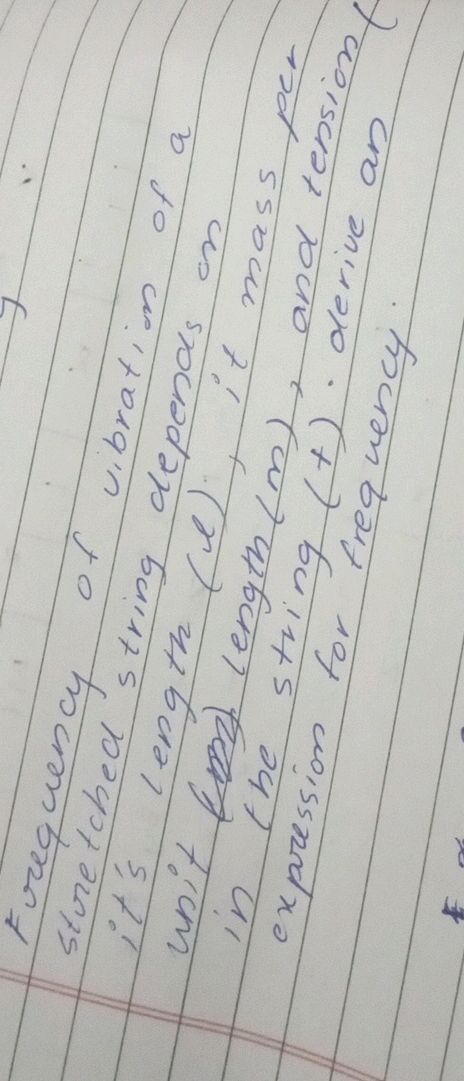 Frequency of vibration of a
stretched string depends on
it's length (l), it mass per
unit length (m), and tension (
in the string (t). derive an
expression for frequency.